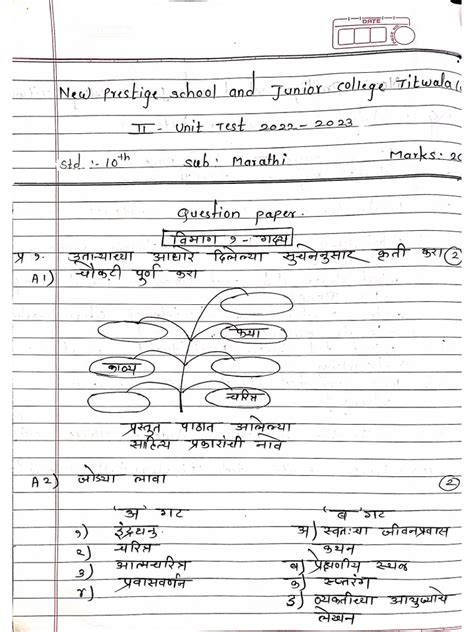 DATE
New Prestige school and Junior college Titwala
II - Unit Test 2022-2023
Std :- 10th sub: Marathi Marks: 20
Question paper.
विभाग १ - गद्य
प्र १. उताऱ्याच्या आधारे दिलेल्या सुचनेनुसार कृती करा (2
A1) चौकटी पुर्ण करा
कथा
काव्य
चरित्र
प्रस्तूत पाठात आलेल्या
साहित्य प्रकारांची नावे
A2) जोड्या लावा (2)
'अ' गट 'ब' गट
१) इंद्रधनु अ) स्वतःच्या जीवनप्रवास
कथन
२) चरित्र ब) प्रेक्षणीय स्थळ
३) आत्मचरित्र क) सप्तरंग
४) प्रवासवर्णन ड) व्यक्तीच्या आयुष्याचे
लेखन